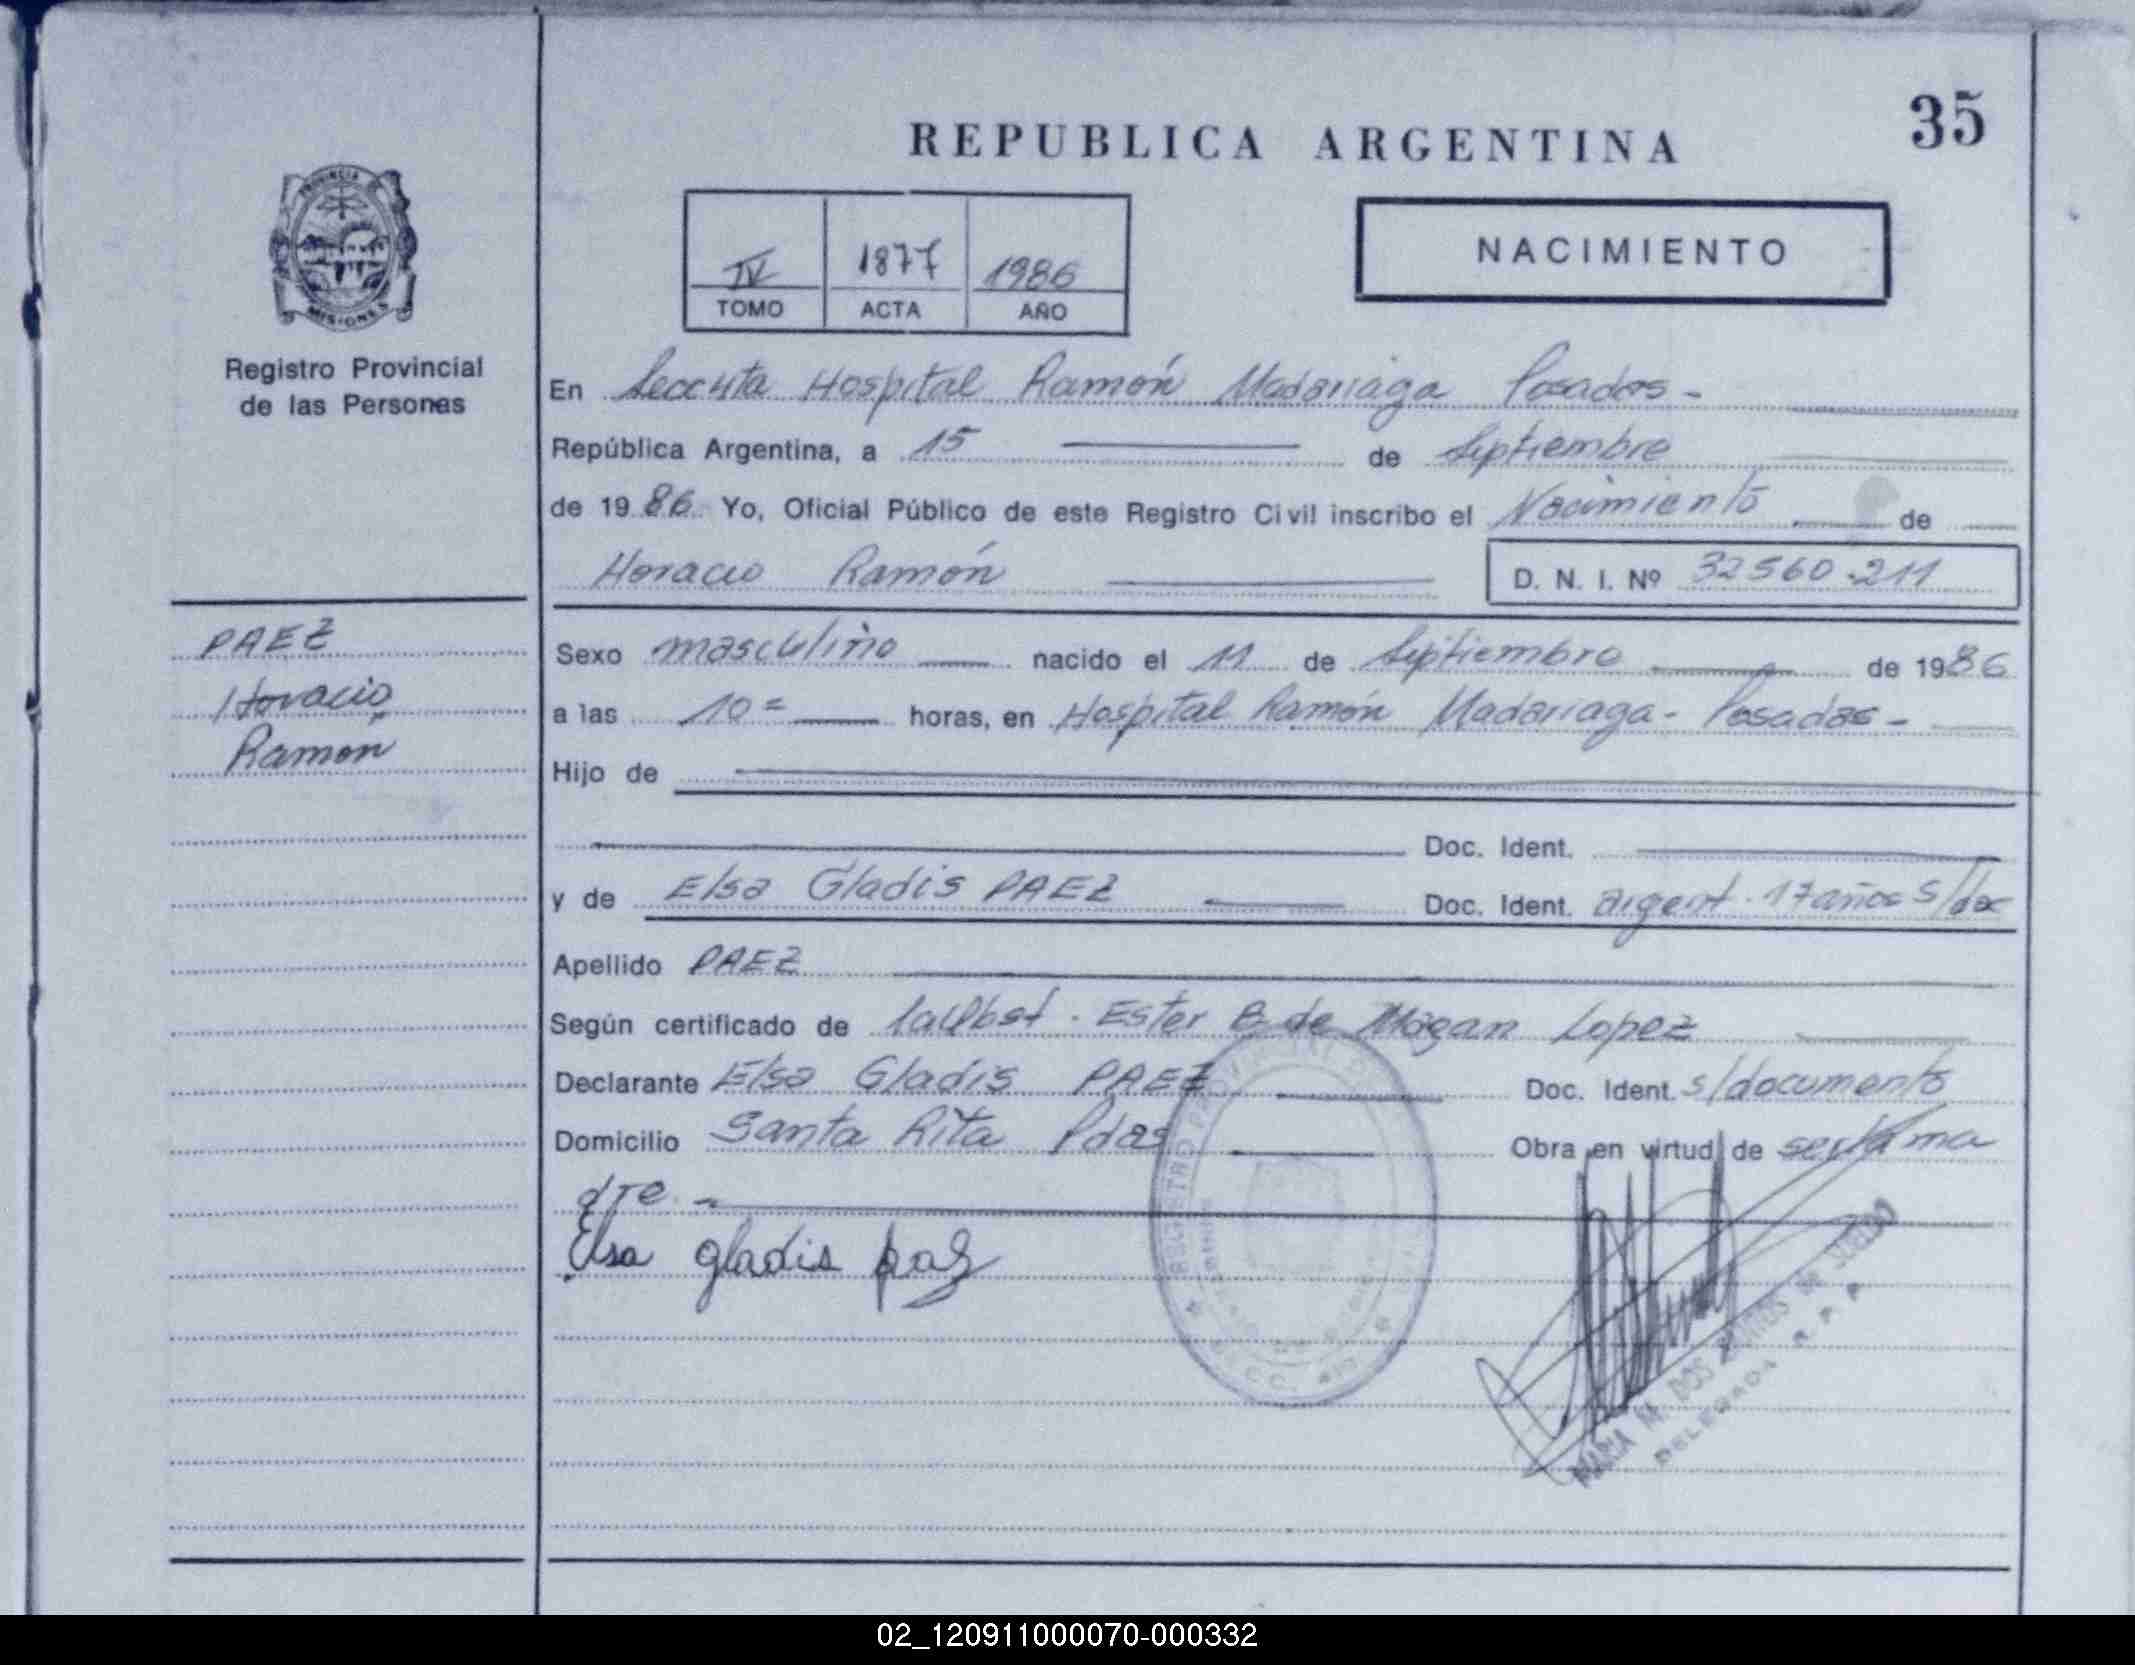 REPUBLICA ARGENTINA
35
PROVINCIA DE
MISIONES
Registro Provincial
de las Personas
IV 1877 1986
TOMO ACTA AÑO
NACIMIENTO
En Hospital Ramón Madariaga Posadas -
República Argentina, a 15 de Septiembre
de 1986 Yo, Oficial Público de este Registro Civil inscribo el Nacimiento de
Horacio Ramón D. N. I. Nº 32560.211
PAEZ
Horacio
Ramon
Sexo masculino nacido el 11 de Septiembre de 1986
a las 10= horas, en Hospital Ramón Madariaga - Posadas -
Hijo de
Doc. Ident.
y de Elsa Gladis PAEZ Doc. Ident. argent. 17 años s/doc
Apellido PAEZ
Según certificado de Ester B de Magan Lopez
Declarante Elsa Gladis PAEZ Doc. Ident. s/documento
Domicilio Santa Rita Pdas Obra en virtud de ser la ma
dre -
Elsa gladis paez
MARIA M. DOS SANTOS DE
DELEGADA R. P. P.
02_120911000070-000332